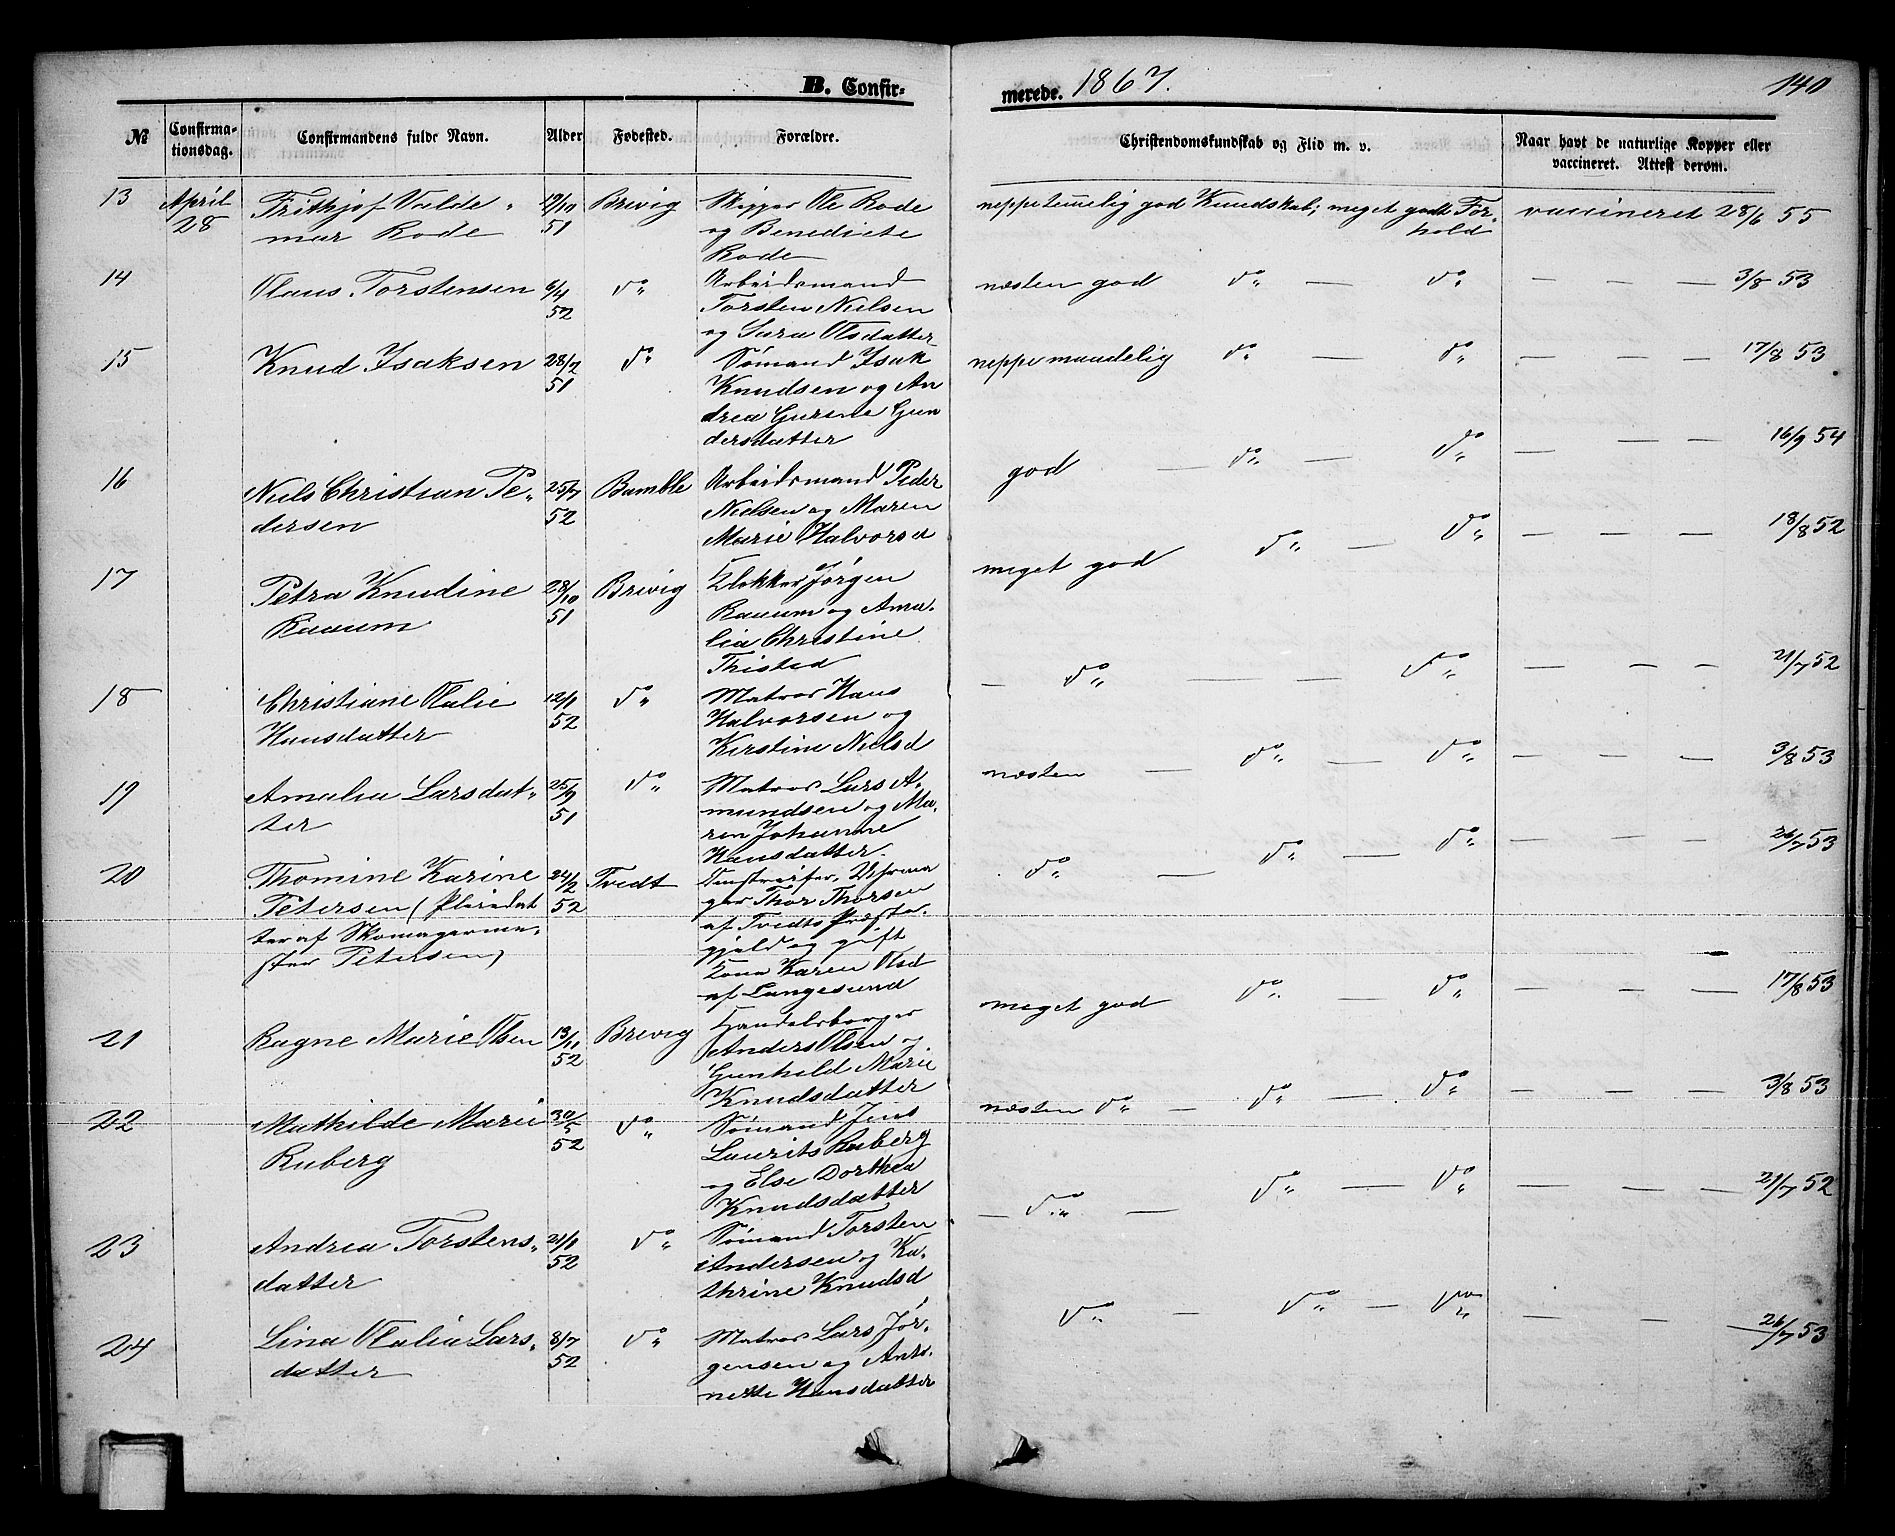 B. Confirmerede. 1867. 140
№ Confirmationsdag. Confirmandens fulde Navn. Alder Fødested. Forældre. Christendomskundskab og Flid m. v. Naar havt de naturlige Kopper eller vaccineret. Attest derom.
13 April 28 Frithjof Valdemar Rode 19/10 51 Brevig Skipper Ole Rode og Benedicte Rode neppe temmelig god Kundskab; meget godt Forhold vaccineret 28/6 55
14 Olaus Torstensen 6/4 52 do Arbeidsmand Torsten Nielsen og Sara Olsdatter næsten god do — do — — — 3/8 53
15 Knud Isaksen 28/7 51 do Sømand Isak Knudsen og Andrea Gurine Gundersdatter neppe maadelig do — do — — — 17/8 53
16 Niels Christian Pedersen 25/7 52 Bamble Arbeidsmand Peder Nielsen og Maren Marie Halvorsd god — do — do — — — 16/9 54
17 Petra Knudine Raaum 28/10 51 Brevig Klokker Jørgen Raaum og Amalia Christine Thistad meget god do — do — — — 18/8 52
18 Christiane Olalie Hansdatter 12/1 52 do Matros Hans Halvorsen og Kirstine Nielsd — do — — do — — — 21/7 52
19 Amalia Larsdatter 25/9 51 do Matros Lars Amundsen og Maren Johanne Hansdatter. næsten — do — do — — — 3/8 53
20 Thomine Karine Petersen (Pleiedatter af Skomagermester Petersen) 24/2 52 Tvedt Uhrmager Thor Thorsen af Tvedts Præstegjeld og gift Kone Karen Olsd af Langesund do — do — do — — — 26/7 53
21 Ragne Marie Olsen 13/11 52 Brevig Handelsborger Anders Olsen og Gunhild Marie Knudsdatter meget god do — do — — — 17/8 53
22 Mathilde Marie Ruberg 30/5 52 do Sømand Jens Laurits Ruberg og Else Dorthea Knudsdatter næsten do — do — do — — — 3/8 53
23 Andrea Torstensdatter 21/1 52 do Sømand Torsten Andersen og Kathrine Knudsd — do — do — do — — — 21/7 52
24 Lina Olalia Larsdatter 8/7 52 do Matros Lars Jørgensen og Antonette Hansdatter do — do — do — — — 26/7 53